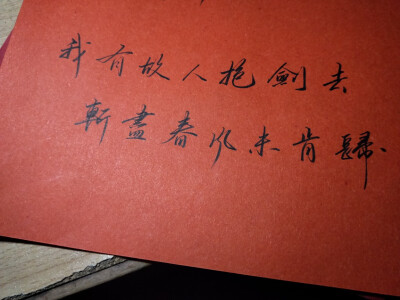 我有故人抱劍去
斬盡春风未肯歸.